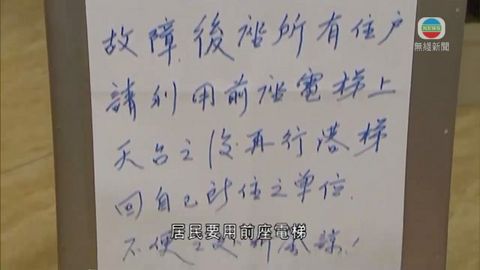 無綫新聞
故障,後座所有住戶
請利用前座電梯上
天台之後再行落梯
回自己所住之單位.
居民要用前座電梯
不便之處,祈為諒!